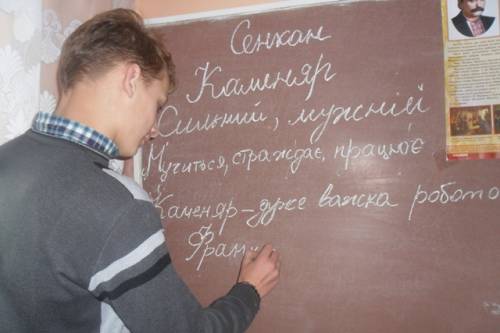 Сенкан
Каменяр
Сильний, мужній
Мучиться, страждає, працює
Каменяр – дуже важка робота
Фран